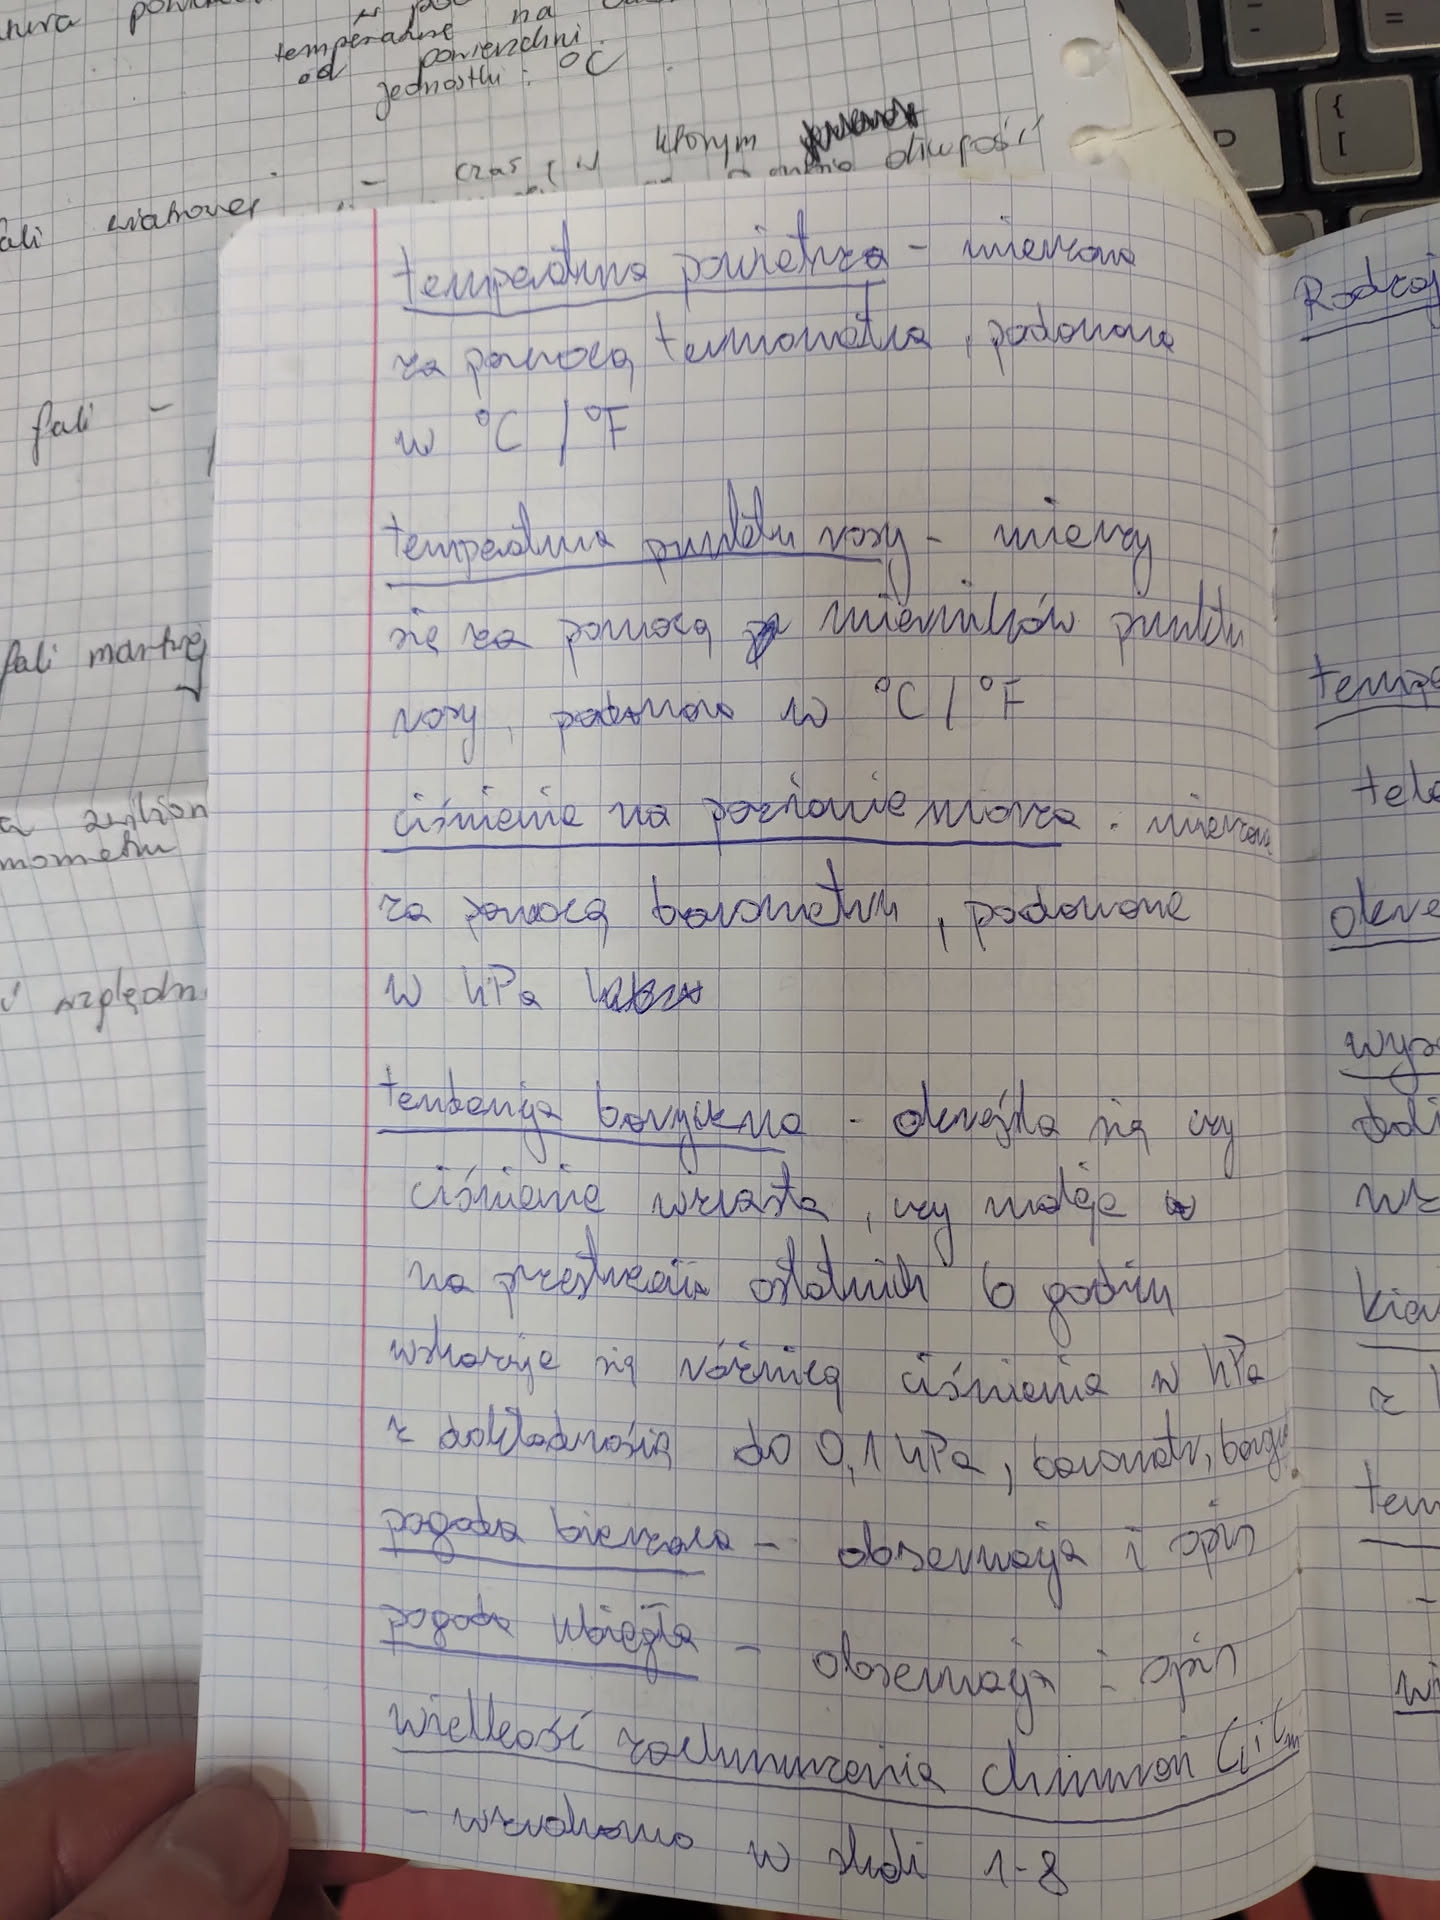 temperaturę na
od powierzchni.
jednostki: °C
czas, w którym
fali wiatrowej -
fali -
fali martwej
względn
temperatura powietrza - mierzona
za pomocą termometra, podawana
w °C / °F
temperatura punktu rosy - mierzy
się za pomocą mierników punktu
rosy, podawana w °C / °F
ciśnienie na poziomie morza - mierzone
za pomocą barometru, podawane
w hPa
tendencja baryczna - określa się czy
ciśnienie wzrasta, czy maleje
na przestrzeni ostatnich 6 godzin
wskazuje się różnicę ciśnienia w hPa
z dokładnością do 0,1 hPa, barometr,
pogoda bieżąca - obserwacja i opis
pogoda ubiegła - obserwacja i opis
wielkość zachmurzenia chmurami
- wzrokowo w skali 1-8
Rodzaj
{
[
=
-